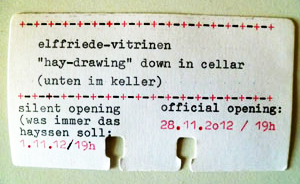 elffriede-vitrinen
"hay-drawing" down in cellar
(unten im keller)
silent opening
(was immer das
hayssen soll:
1.11.12/19h
official opening:
28.11.2o12 / 19h